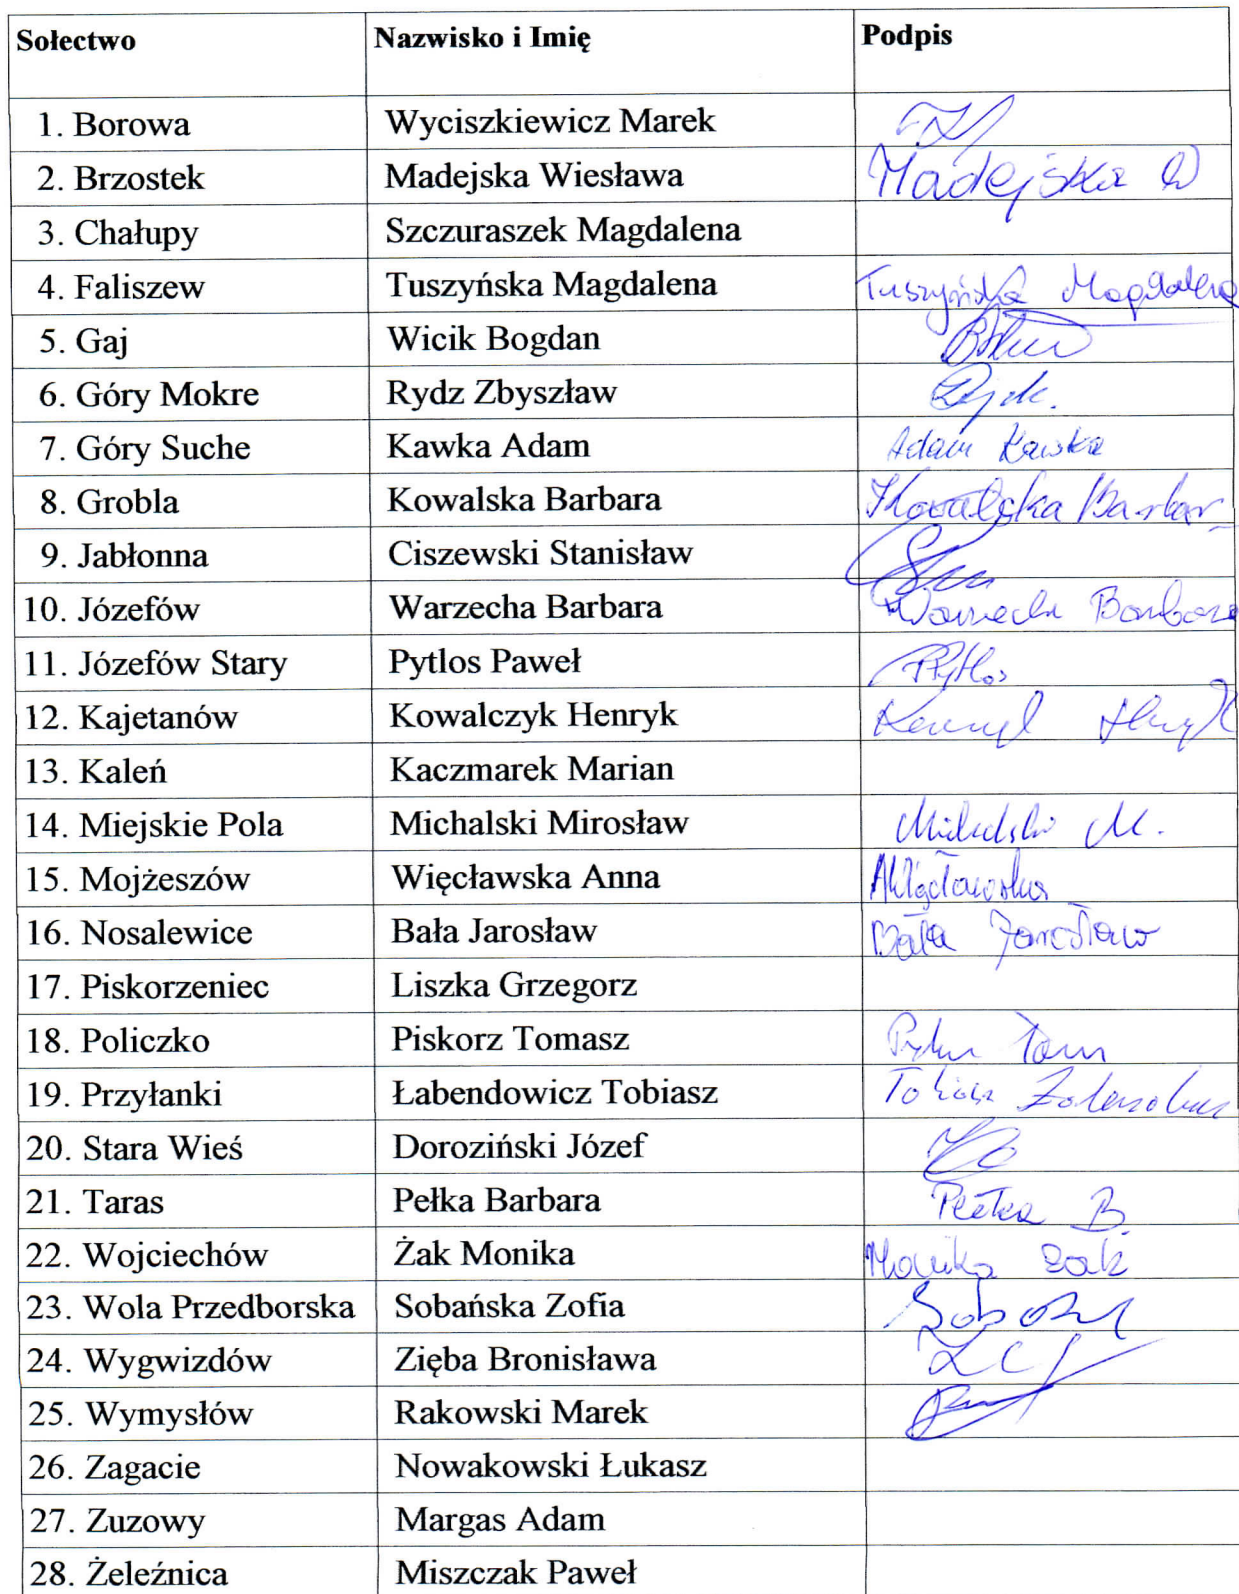 Sołectwo Nazwisko i Imię Podpis
1. Borowa Wyciszkiewicz Marek
2. Brzostek Madejska Wiesława Madejska W
3. Chałupy Szczuraszek Magdalena
4. Faliszew Tuszyńska Magdalena Tuszyńska Magdalena
5. Gaj Wicik Bogdan
6. Góry Mokre Rydz Zbyszław
7. Góry Suche Kawka Adam Adam Kawka
8. Grobla Kowalska Barbara Kowalska Barbar
9. Jabłonna Ciszewski Stanisław
10. Józefów Warzecha Barbara Warzecha Barbara
11. Józefów Stary Pytlos Paweł PPytlos
12. Kajetanów Kowalczyk Henryk
13. Kaleń Kaczmarek Marian
14. Miejskie Pola Michalski Mirosław Michalski M.
15. Mojżeszów Więcławska Anna AWięcławska
16. Nosalewice Bała Jarosław Bała Jarosław
17. Piskorzeniec Liszka Grzegorz
18. Policzko Piskorz Tomasz
19. Przyłanki Łabendowicz Tobiasz Tobiasz
20. Stara Wieś Doroziński Józef
21. Taras Pełka Barbara Pełka B.
22. Wojciechów Żak Monika Monika Żak
23. Wola Przedborska Sobańska Zofia
24. Wygwizdów Zięba Bronisława
25. Wymysłów Rakowski Marek
26. Zagacie Nowakowski Łukasz
27. Zuzowy Margas Adam
28. Żeleźnica Miszczak Paweł